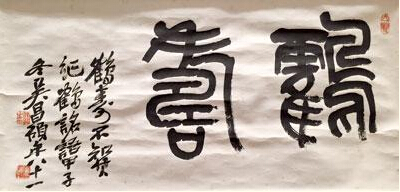 鶴壽
鶴壽不知其
紀鶴銘語甲子
冬吳昌碩年八十一